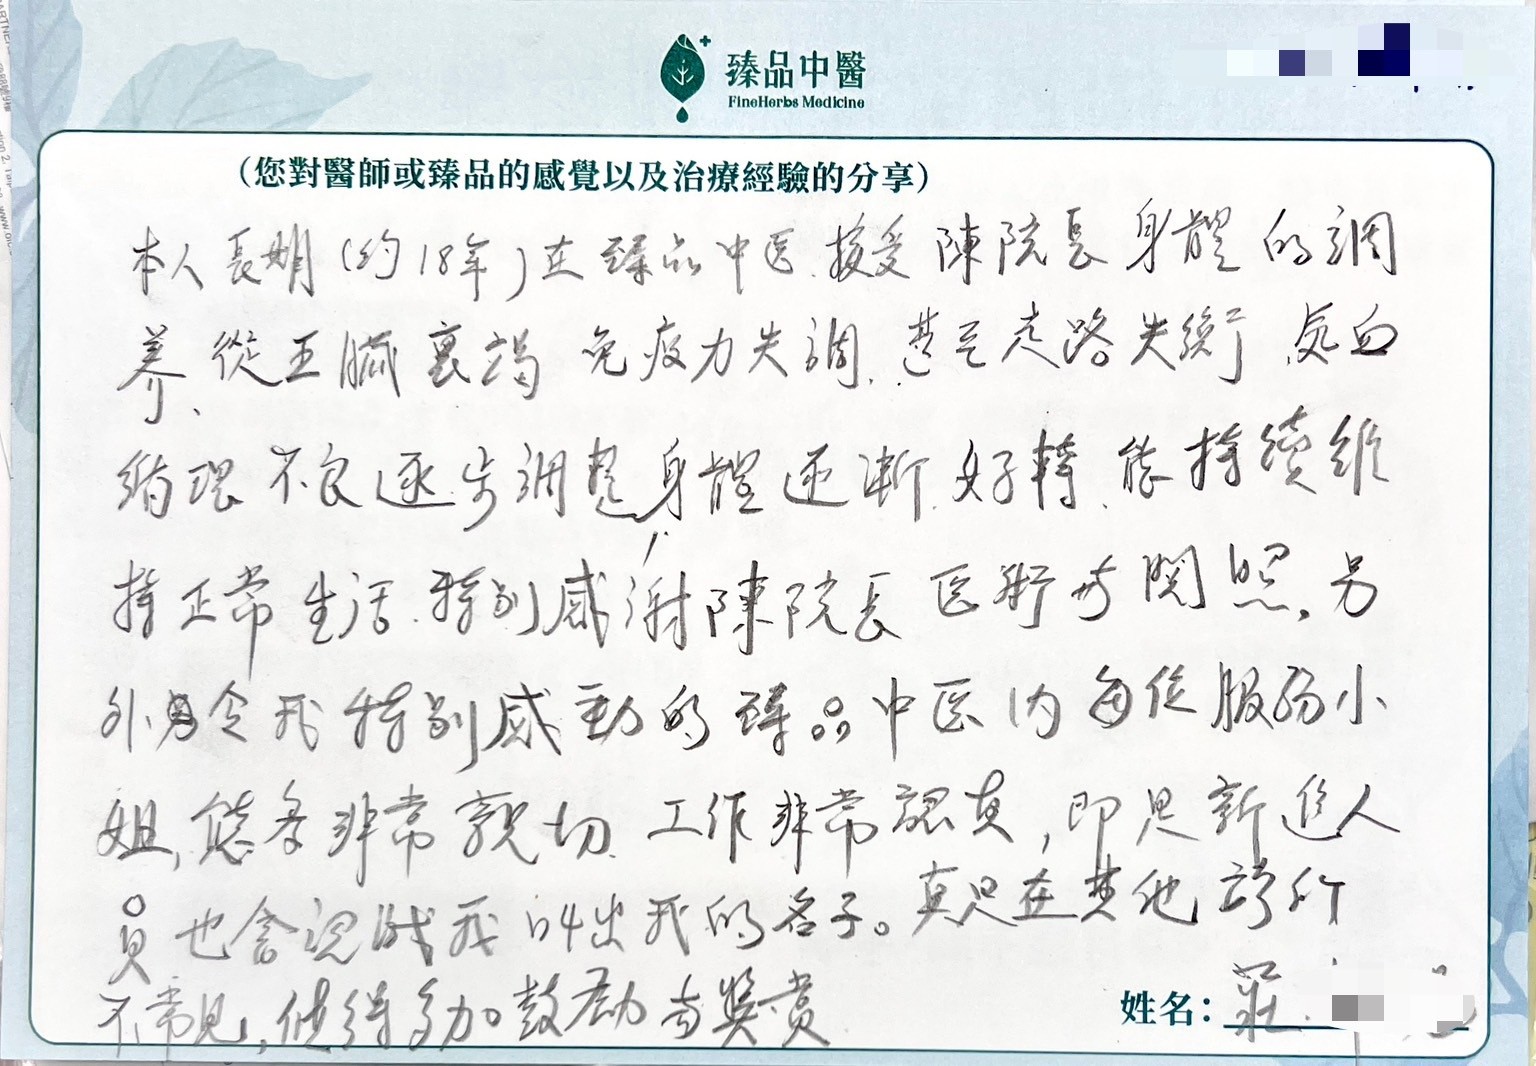 臻品中醫
FineHerbs Medicine
(您對醫師或臻品的感覺以及治療經驗的分享)
本人長期(約18年)在臻品中医.接受陳院長身體的調
养、從五臟衰竭免疫力失調.甚至走路失衡 気血
循环不良逐步調整身體逐漸好轉.能持續維
持正常生活.特別感謝陳院長医術与関照。另
外令我特別感動的臻品中医内每位服務小
姐,態度非常親切.工作非常認真,即是新進人
員也會認識我叫出我的名子。真是在其他診所
不常見,值得多加鼓勵与獎賞
姓名:莊